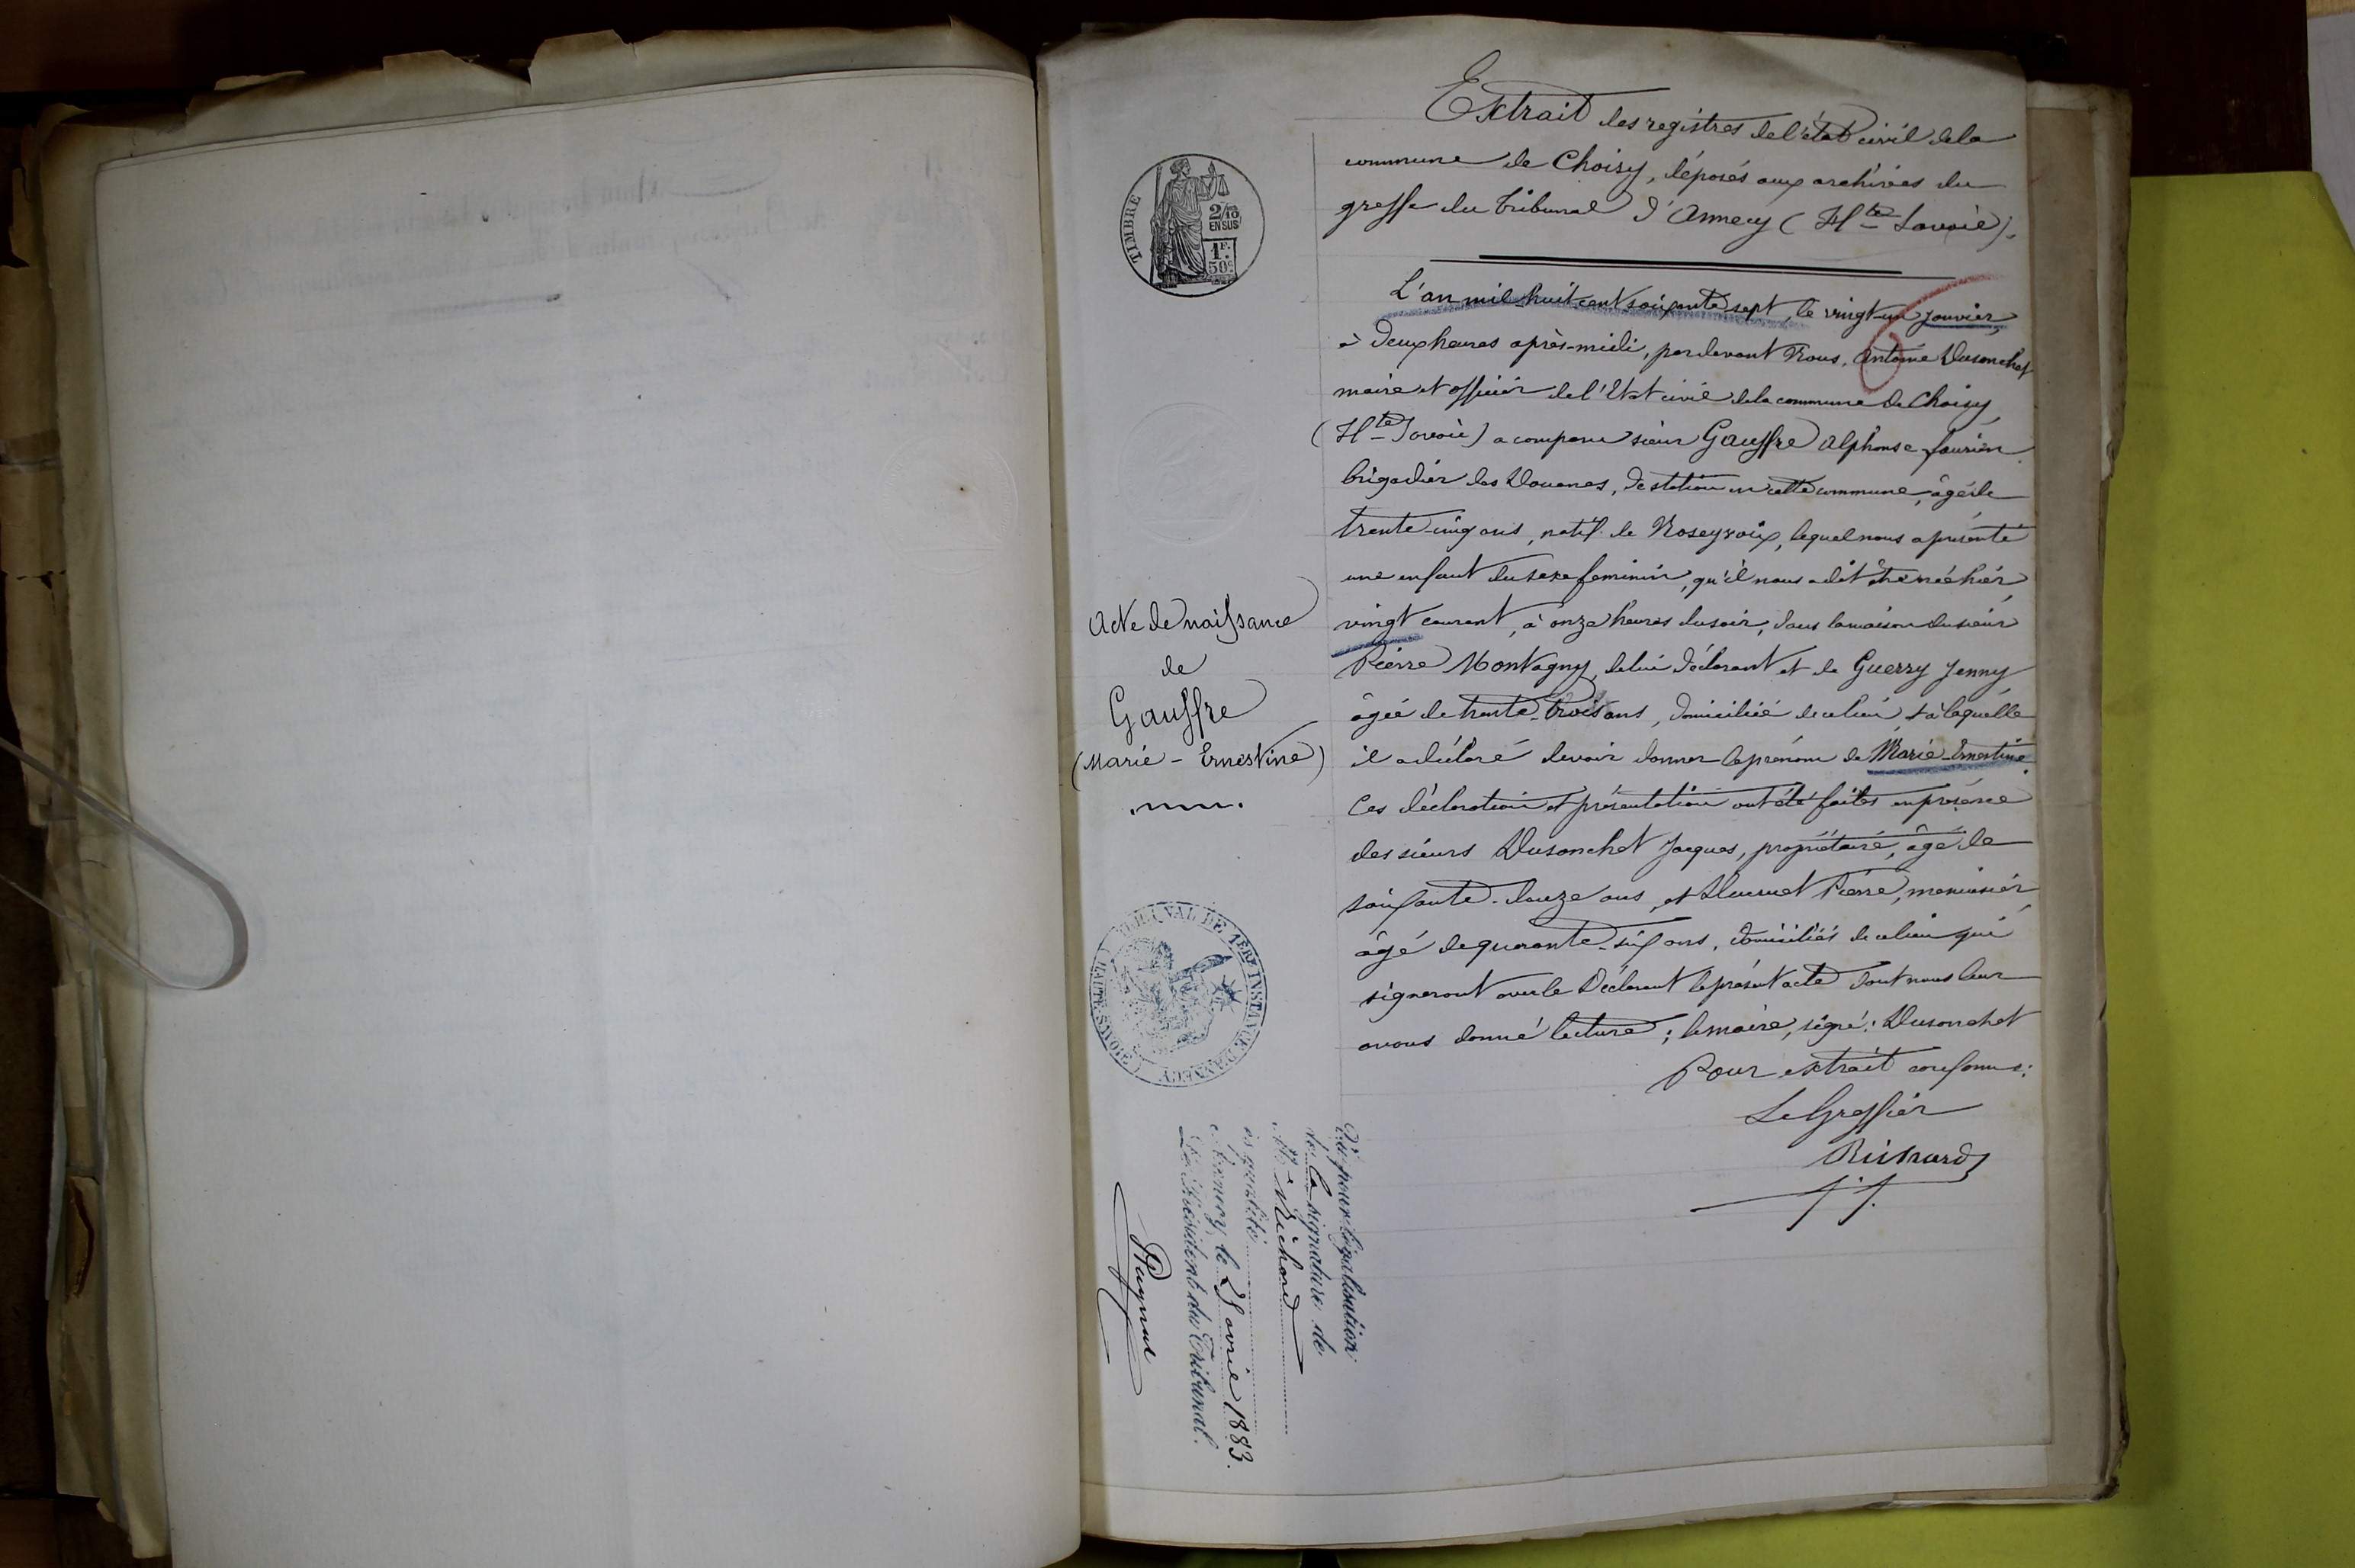 Extrait des registres de l'état civil de la
commune de Choisy, déposés aux archives du
greffe du tribunal d'Annecy (Hte-Savoie).
TIMBRE
2/10
EN SUS
1F.
50c
L'an mil huit cent soixante sept, le vingt-un janvier,
à deux heures après-midi, par devant Nous, Antoine Dusonchet
maire et officier de l'Etat civil de la commune de Choisy,
(Hte-Savoie) a comparu sieur Gauffre Alphonse
brigadier des Douanes, de station en cette commune, âgé de
trente-cinq ans, natif de lequel nous a présenté
une enfant du sexe feminin, qu'il nous a dit être née hier,
vingt courant, à onze heures du soir, dans la maison du sieur
Pierre Montagny, de lui déclarant et de Guerry Jenny,
âgée de trente-trois ans, domiciliée de ce lieu, & à laquelle
il a déclaré devoir donner le prénom de Marie-Ernestine.
Ces déclaration et présentation ont été faites en présence
des sieurs Dusonchet Jacques, propriétaire, âgé de
soixante-douze ans, et Pierre, menuisier,
âgé de quarante-six ans, domiciliés de ce lieu qui
signeront avec le Déclarant le présent acte dont nous leur
avons donné lecture; le maire, signé: Dusonchet
Pour extrait conforme:
Le Greffier
Richard
Acte de naissance
de
Gauffre
(Marie-Ernestine)
TRIBUNAL DE 1ERE INSTANCE D'ANNECY (HAUTE-SAVOIE)
Vu pour légalisation
de la signature de
Me Richard
ès qualité
Annecy, le 2 avril 1883.
Le Président du Tribunal.